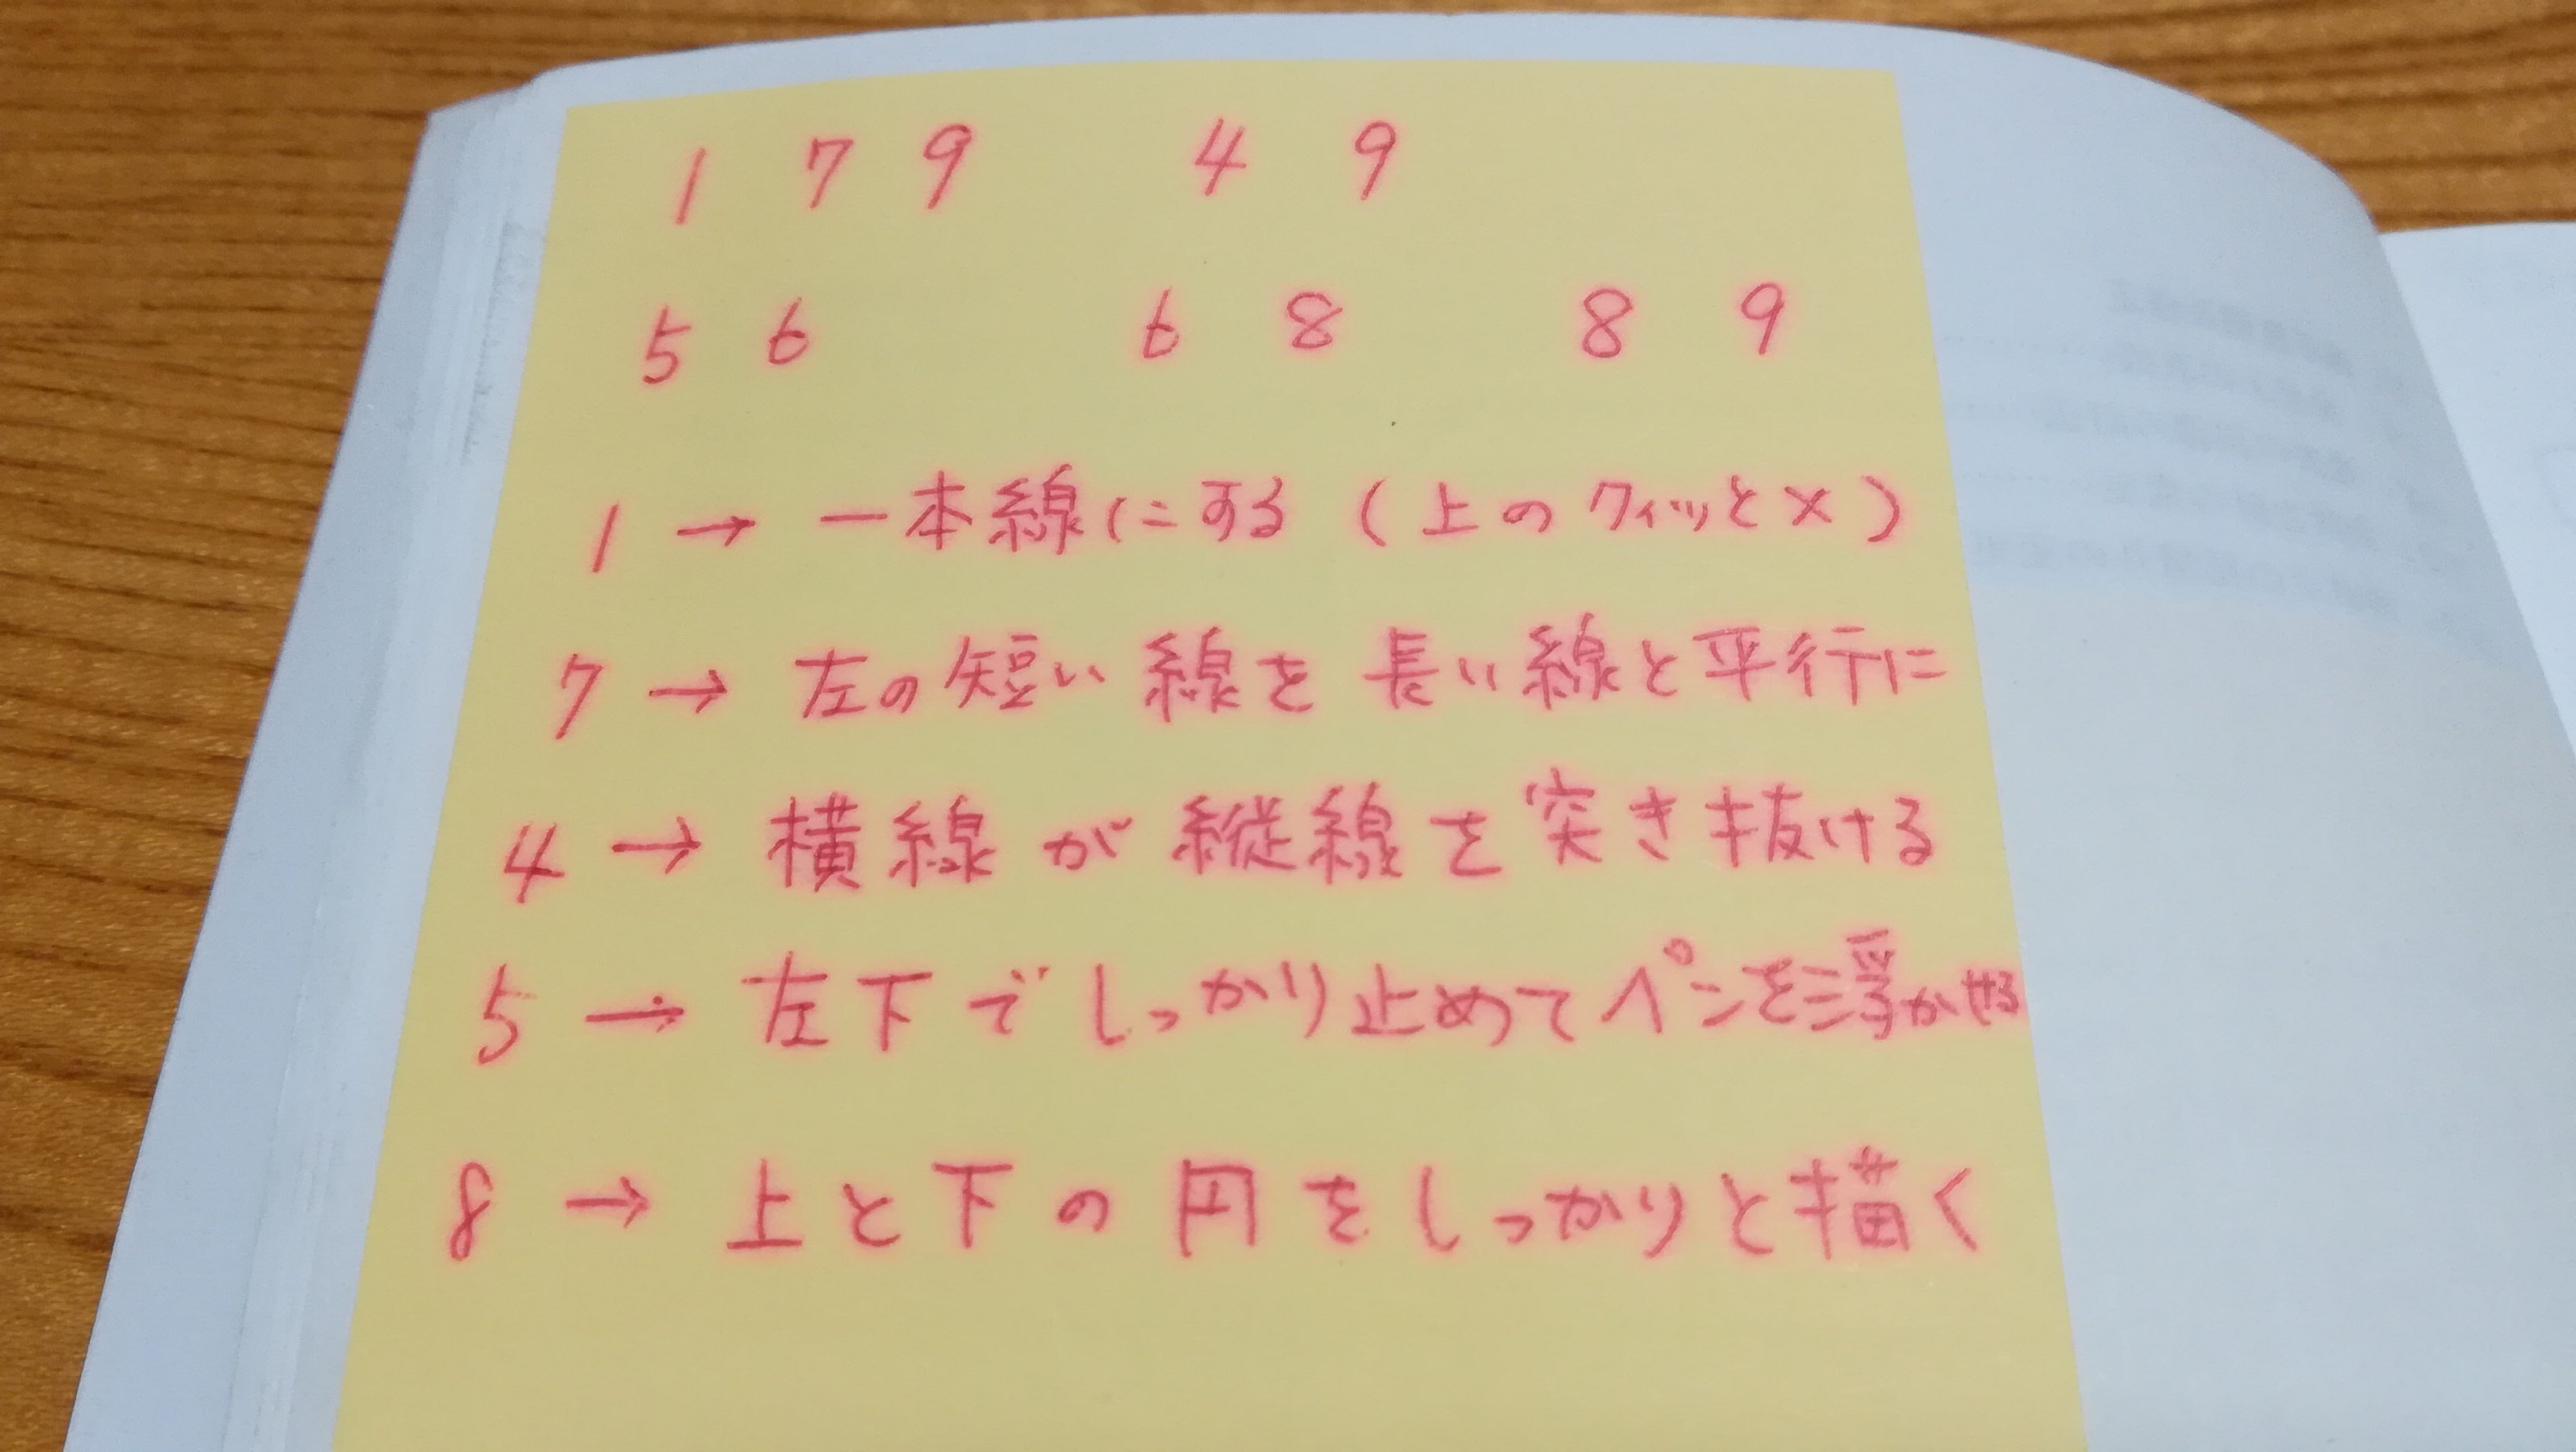 1 7 9 4 9
5 6 6 8 8 9
1 → 一本線にする (上のクィッと×)
7 → 左の短い線を長い線と平行に
4 → 横線が縦線を突き抜ける
5 → 左下でしっかり止めてペンを浮かせる
8 → 上と下の円をしっかりと描く